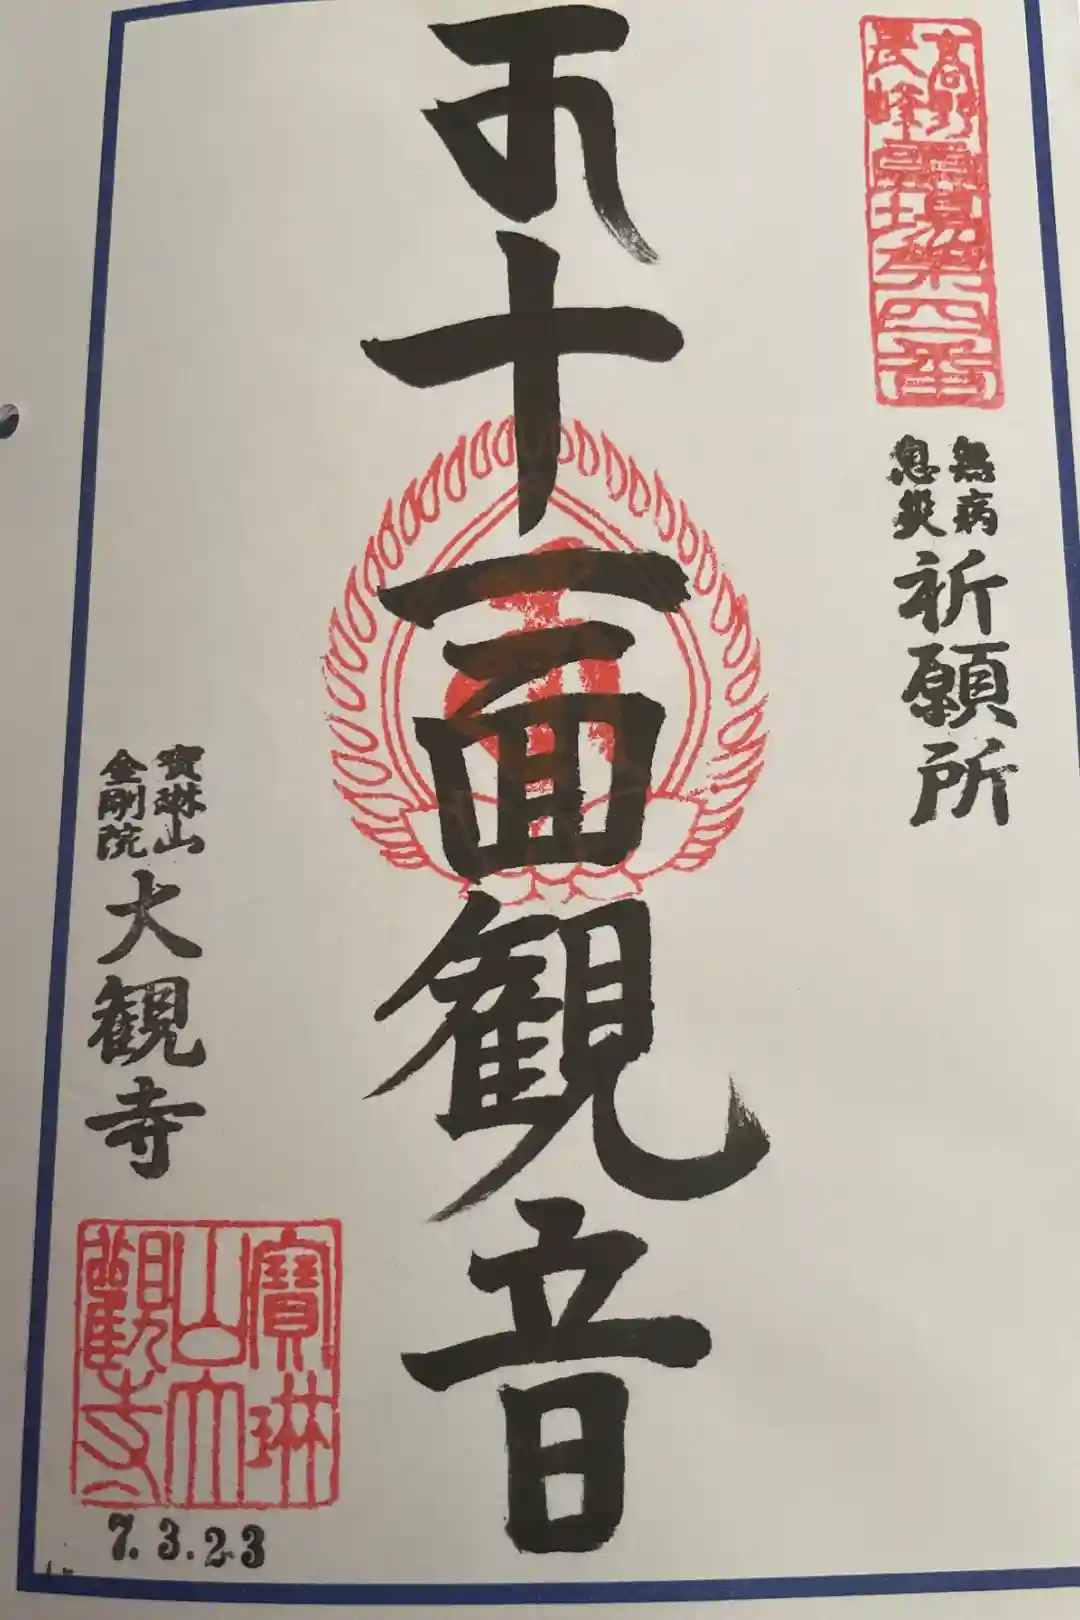 高野
長峰
霊場第四番
無病
息災
祈願所
十一面観音
寳琳山
金剛院
大観寺
寳琳
山大
観寺
7.3.23